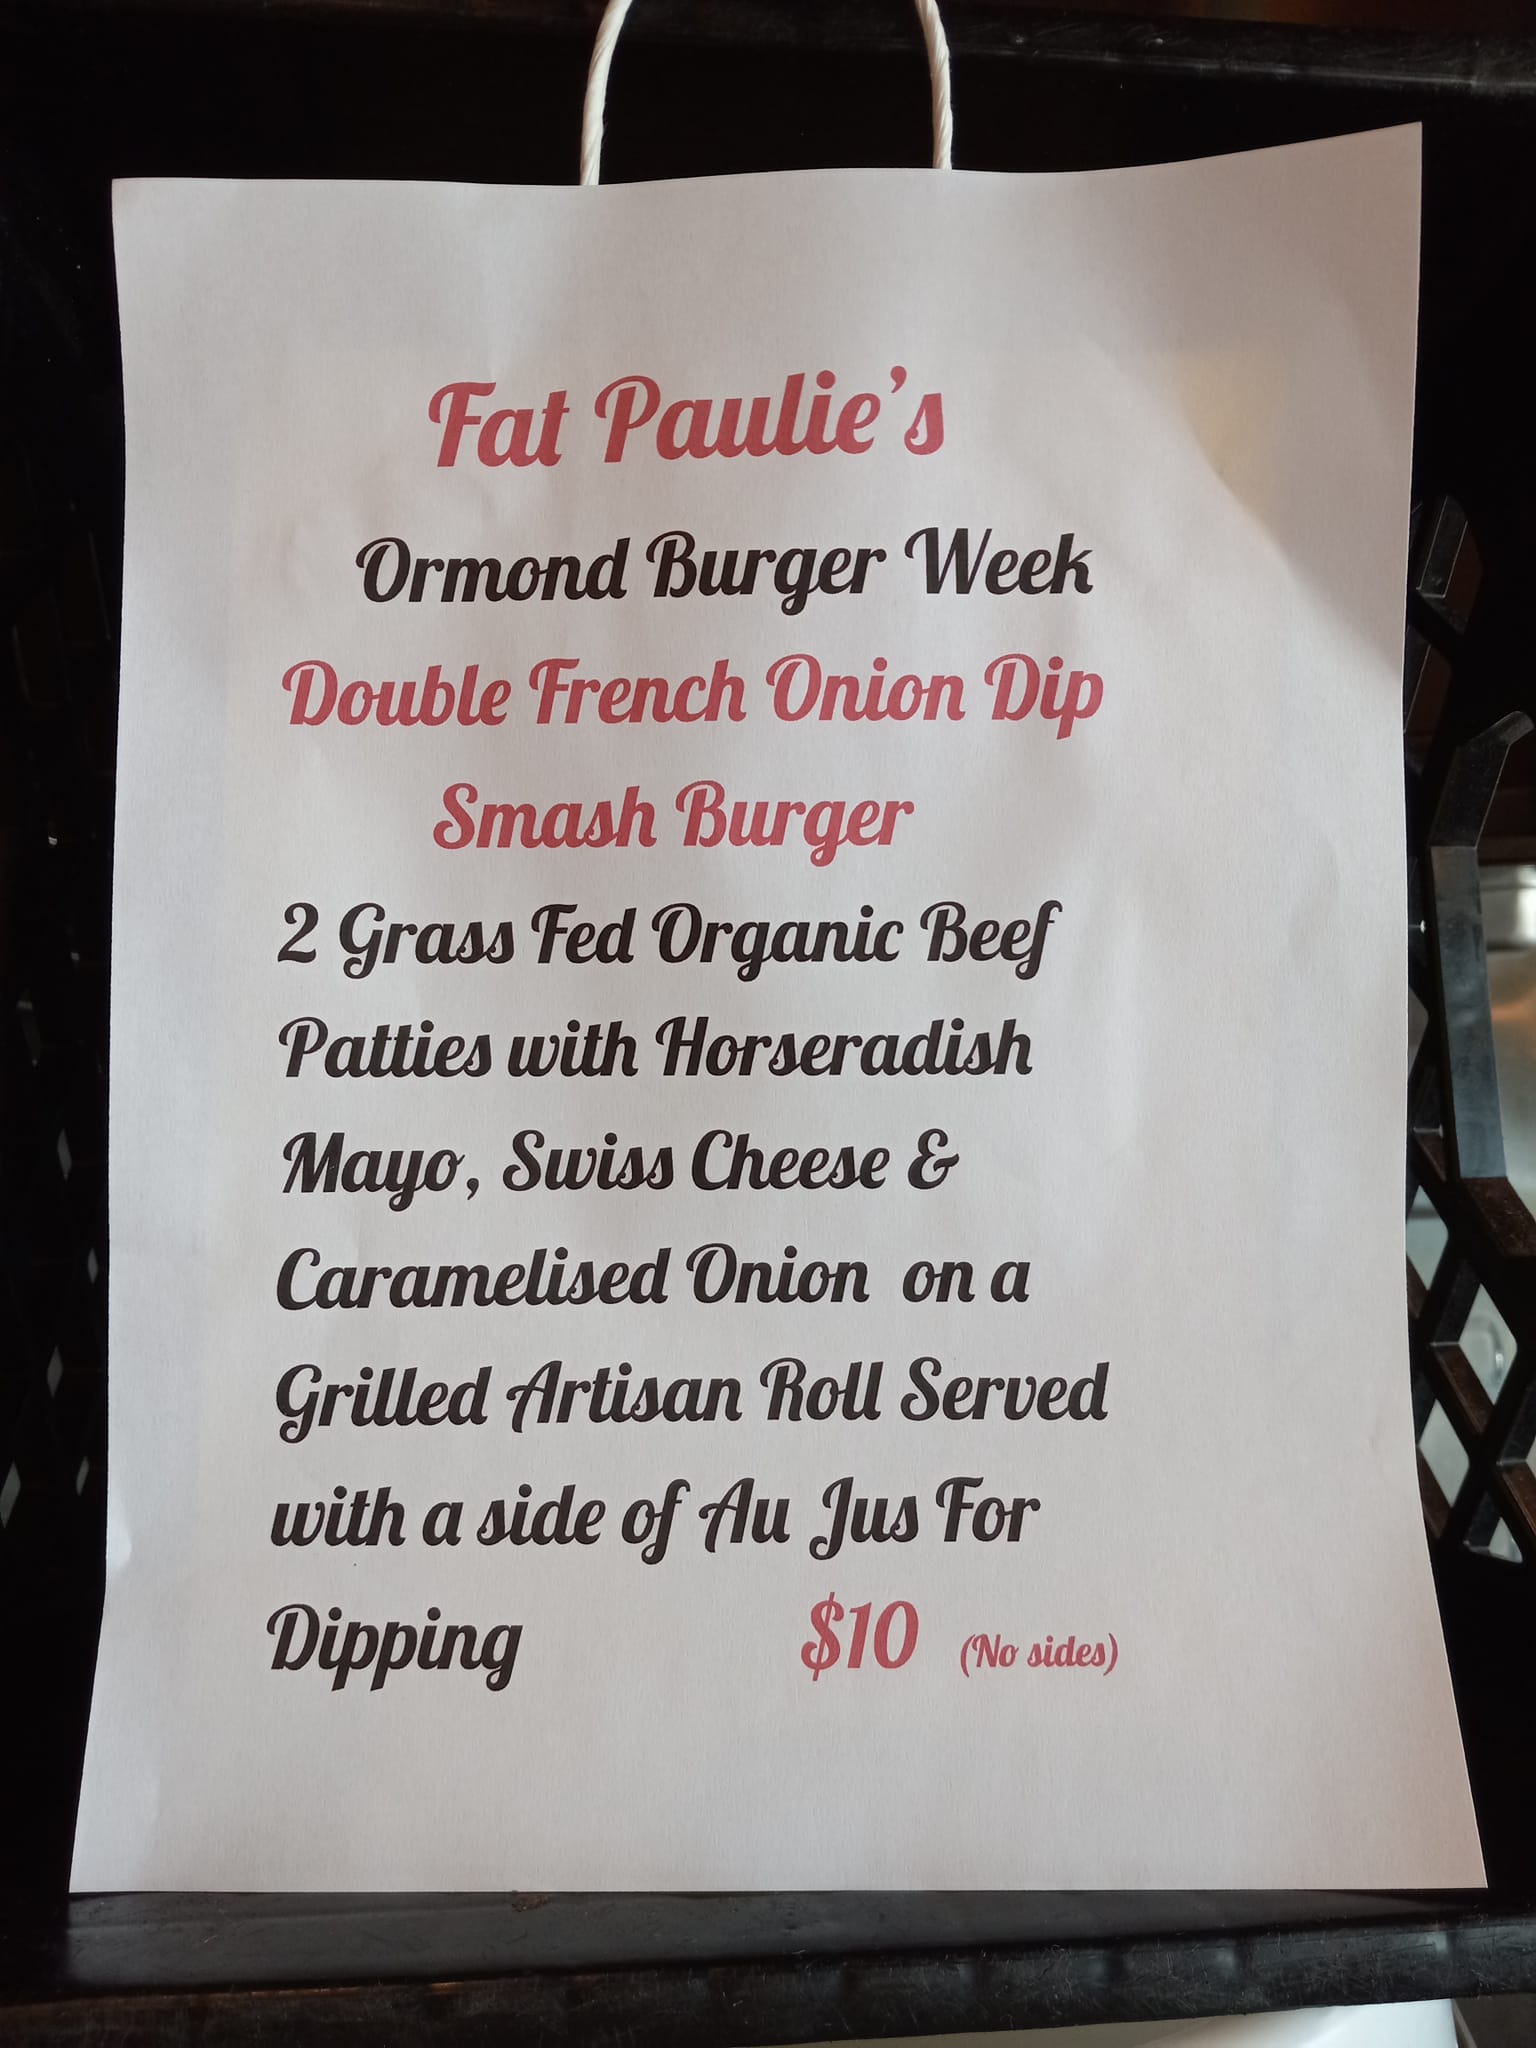 Fat Paulie's
Ormond Burger Week
Double French Onion Dip
Smash Burger
2 Grass Fed Organic Beef
Patties with Horseradish
Mayo, Swiss Cheese &
Caramelised Onion on a
Grilled Artisan Roll Served
with a side of Au Jus For
Dipping $10 (No sides)